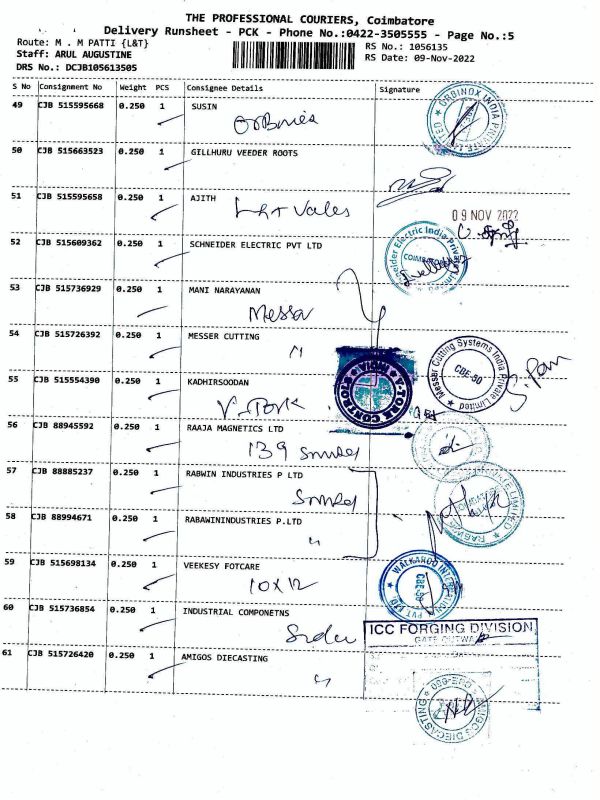 THE PROFESSIONAL COURIERS, Coimbatore
Delivery Runsheet - PCK - Phone No.:0422-3505555 - Page No.:5
Route: M . M PATTI {L&T}
RS No.: 1056135
Staff: ARUL AUGUSTINE
RS Date: 09-Nov-2022
DRS No.: DCJB105613505
S No Consignment No Weight PCS Consignee Details Signature
49 CJB 515595668 0.250 1 SUSIN
ORBINOX INDIA PRIVATE LIMITED
50 CJB 515663523 0.250 1 GILLHURU VEEDER ROOTS
51 CJB 515595658 0.250 1 AJITH
L&T Valves
09 NOV 2022
52 CJB 515609362 0.250 1 SCHNEIDER ELECTRIC PVT LTD
Schneider Electric India Private Limited
53 CJB 515736929 0.250 1 MANI NARAYANAN
Messer
54 CJB 515726392 0.250 1 MESSER CUTTING
Messer Cutting Systems India Private Limited
CBE-90
55 CJB 515554390 0.250 1 KADHIRSOODAN
V-TORK CONTROLS INDIA
V.Tork
56 CJB 88945592 0.250 1 RAAJA MAGNETICS LTD
139
57 CJB 88885237 0.250 1 RABWIN INDUSTRIES P LTD
PRIVATE LIMITED
58 CJB 88994671 0.250 1 RABAWININDUSTRIES P.LTD
59 CJB 515698134 0.250 1 VEEKESY FOTCARE
10x12
60 CJB 515736854 0.250 1 INDUSTRIAL COMPONETNS
ICC FORGING DIVISION
61 CJB 515726420 0.250 1 AMIGOS DIECASTING
AMIGOS DIECASTING